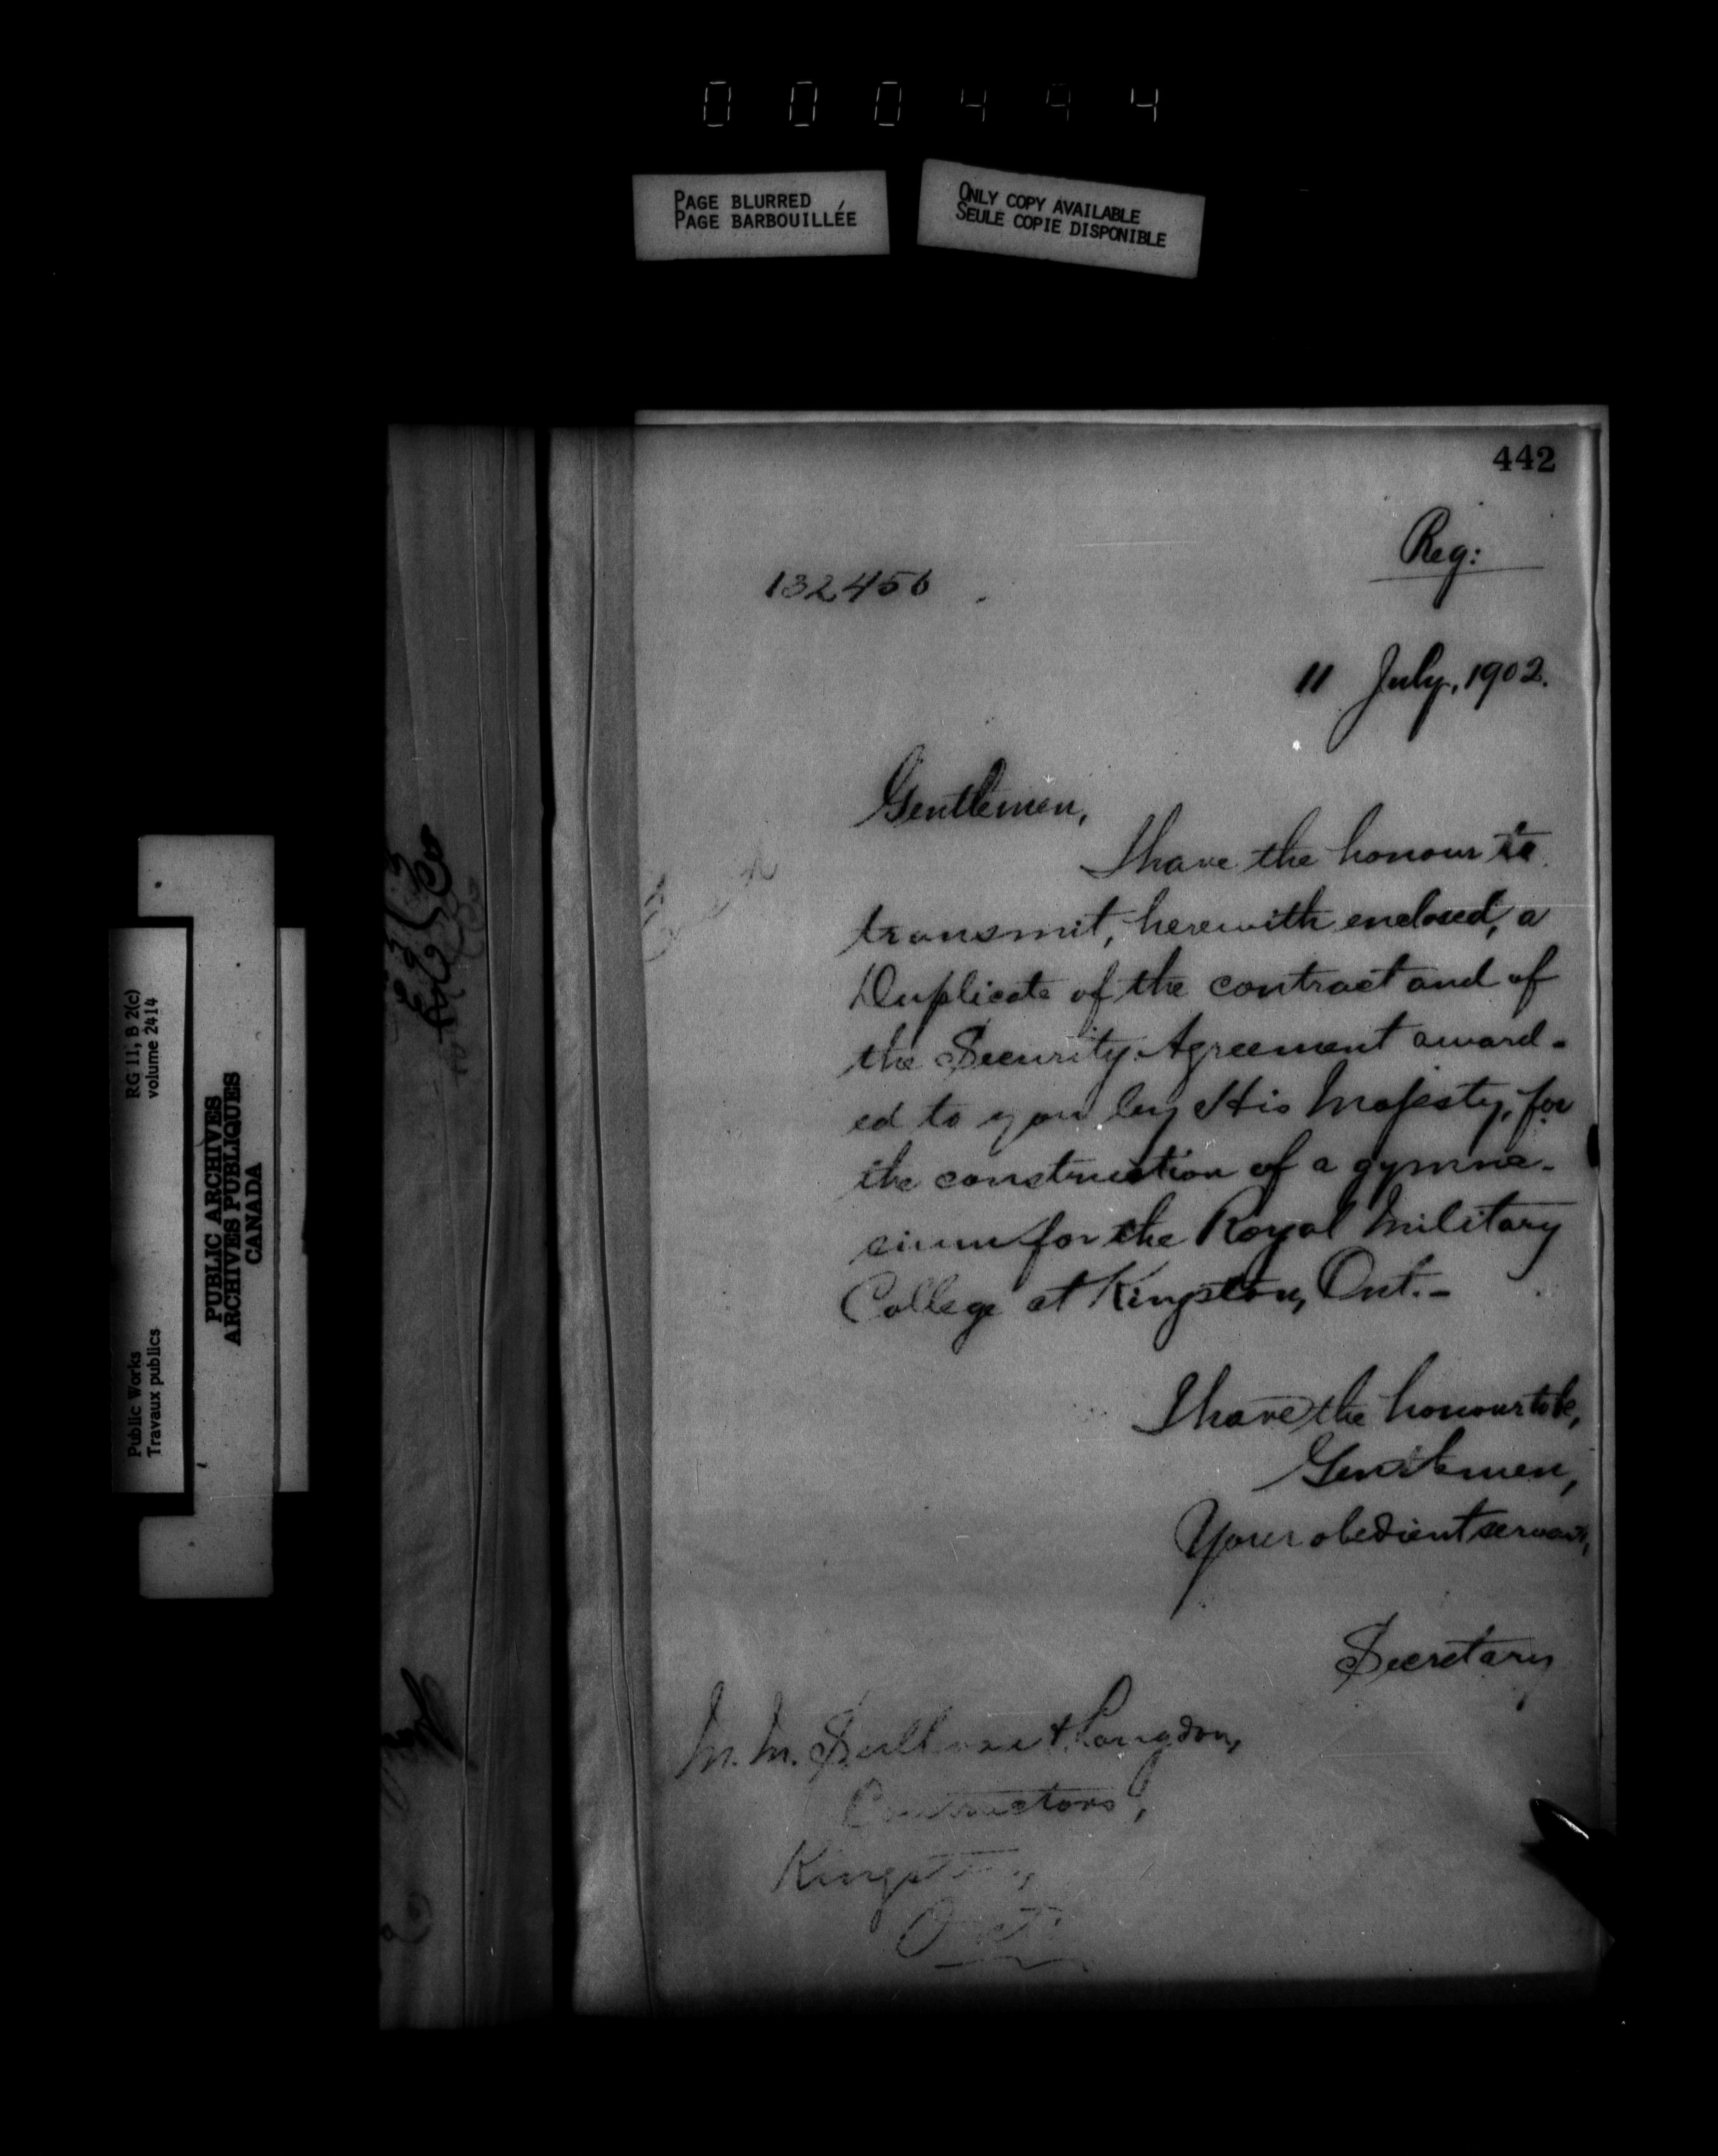 000494
PAGE BLURRED
PAGE BARBOUILLÉE
ONLY COPY AVAILABLE
SEULE COPIE DISPONIBLE
442
Reg:
132456
11 July, 1902.
Gentlemen,
I have the honour to
transmit, herewith enclosed, a
Duplicate of the contract and of
the Security Agreement award-
ed to you by His Majesty, for
the construction of a gymna-
sium for the Royal Military
College at Kingston, Ont.-
I have the honour to be,
Gentlemen,
Your obedient servant,
Secretary
M.M. & Langdon,
Contractors,
Kingston,
Ont.
RG 11, B 2(c)
volume 2414
Public Works
Travaux publics
PUBLIC ARCHIVES
ARCHIVES PUBLIQUES
CANADA